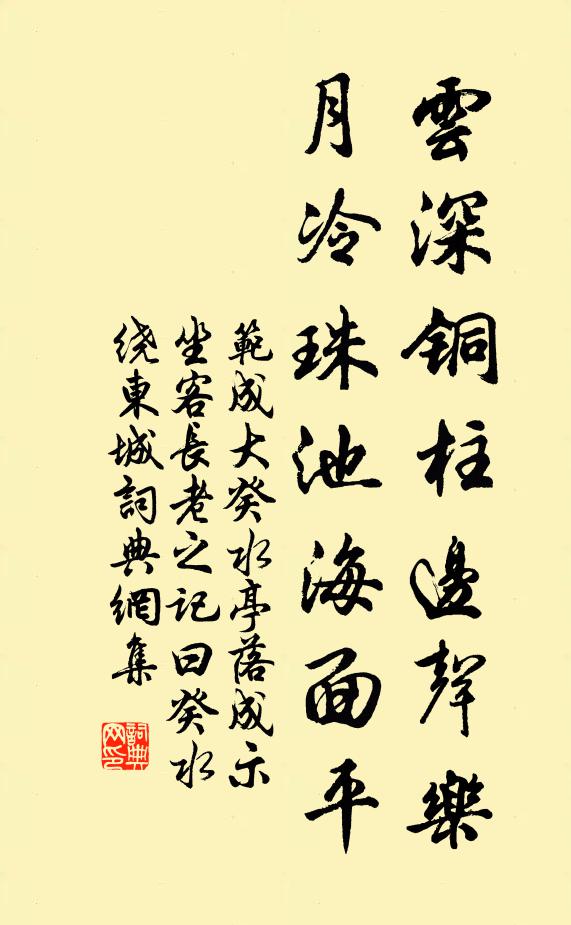 雲深銅柱邊聲樂
月冷珠池海面平
範成大癸水亭落成示
坐客長老之記曰癸水
绕東城詞典網集
詞典网印